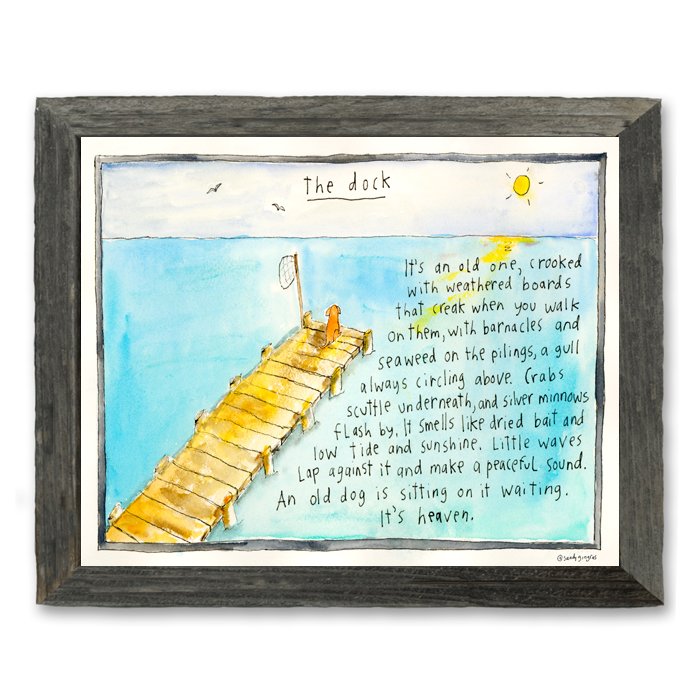 the dock
It's an old one, crooked
with weathered boards
that creak when you walk
on them, with barnacles and
seaweed on the pilings, a gull
always circling above. Crabs
scuttle underneath, and silver minnows
flash by. It smells like dried bait and
low tide and sunshine. Little waves
Lap against it and make a peaceful sound.
An old dog is sitting on it waiting.
It's heaven.
@sandygingras